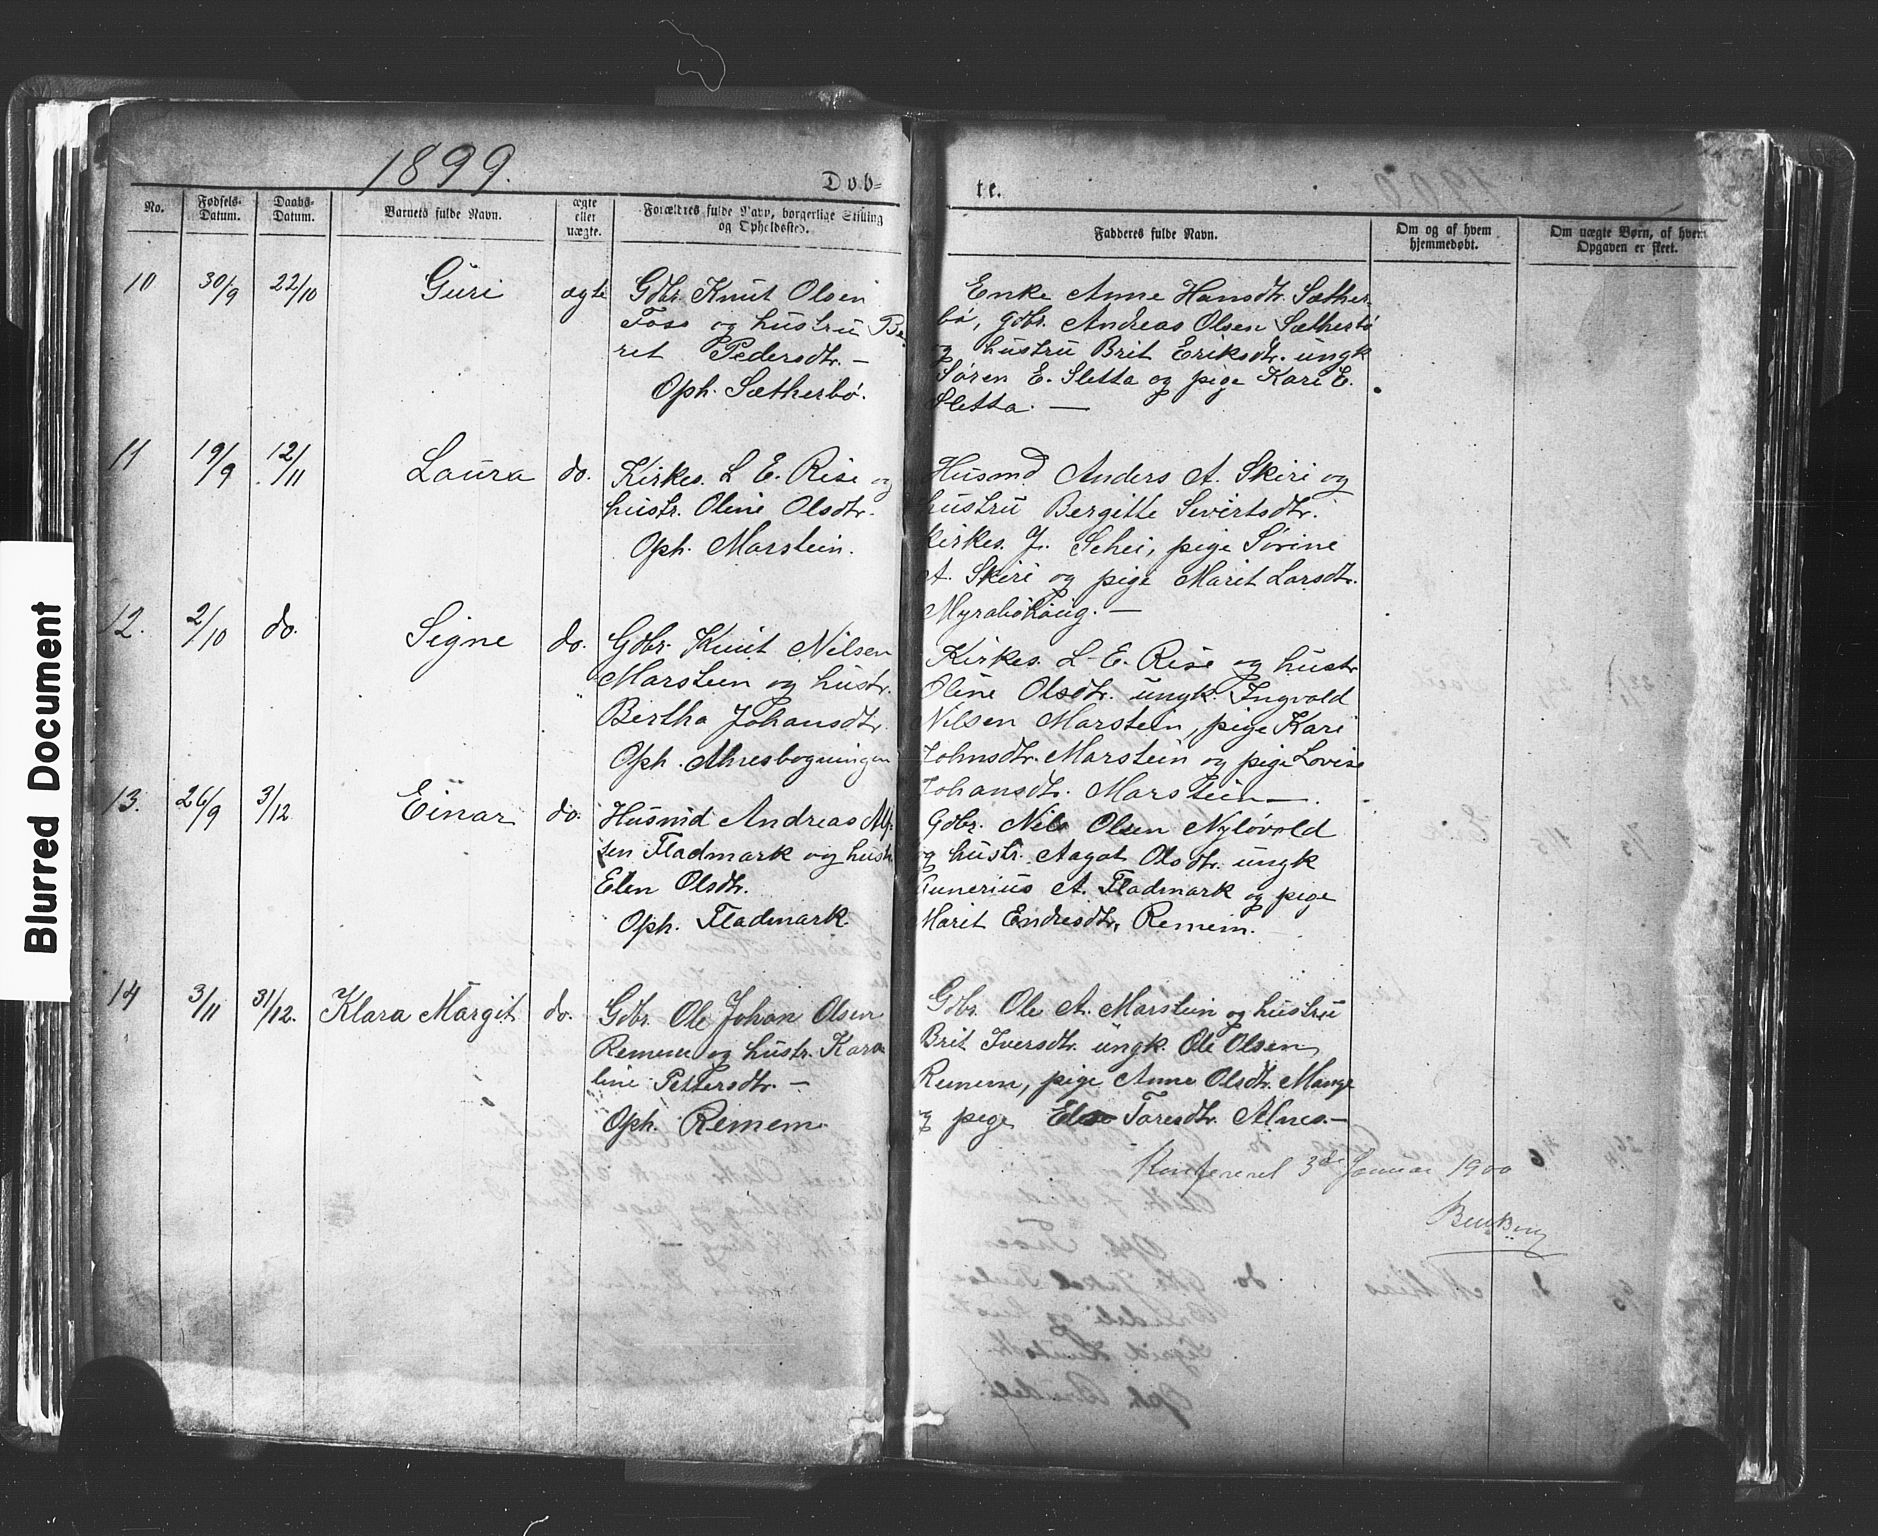 Blurred Document
1899.
Døb=
te.
No.
Fødsels-
Datum.
Daabs-
Datum.
Barnets fulde Navn.
ægte
eller
uægte.
Forældres fulde Navn, borgerlige Stilling
og Opholdssted.
Fadderes fulde Navn.
Om og af hvem
hjemmedøbt.
Om uægte Børn, af hvem
Opgaven er skeet.
10 30/9 22/10 Guri ægte
Gdbr. Knut Olsen
Foss og hustru Be-
ret Pedersdtr. —
Oph. Sætherbø.
Enke Anne Hansdtr. Sæther-
bø, gdbr. Andreas Olsen Sætherbø
og hustru Brit Eriksdtr. ungk
Søren E. Sletta og pige Kari E.
Sletta. —
11 19/9 12/11 Laura do.
Kirkes. L. E. Rise og
hustr. Oline Olsdtr.
Oph. Marstein.
Husmd Anders A. Skiri og
hustru Bergitte Sivertsdtr.
kirkes. J. Schei, pige Sørine
A. Skiri og pige Marit Larsdtr.
Myrabøhaug. —
12. 2/10 do. Signe do.
Gdbr. Knut Nilsen
Marstein og hustr.
Bertha Johansdtr.
Oph.
Kirkes. L. E. Rise og hustr
Oline Olsdtr. ungk. Ingvald
Nilsen Marstein, pige Kari
Johnsdtr. Marstein og pige Lovise
Johansdtr. Marstein —.
13. 26/9 3/12 Einar do.
Husmd Andreas Alf-
sen Fladmark og hustr
Elen Olsdtr.
Oph. Fladmark.
Gdbr. Nils Olsen Nyløvold
og hustr. Aagot Olsdtr. ungk
Gunerius A. Fladmark og pige
Marit Endresdtr. Remem.
14 3/11 31/12. Klara Margit do.
Gdbr. Ole Johan Olsen
Remem og hustr. Karo
line Pettersdtr. —
Oph. Remem.
Gdbr. Ole A. Marstein og hustru
Brit Iversdtr. ungk. Ole Olsen
Remem, pige Anne Olsdtr. Mange
og pige Else Toresdtr. Alnes —
Konfereret 3de Januar 1900